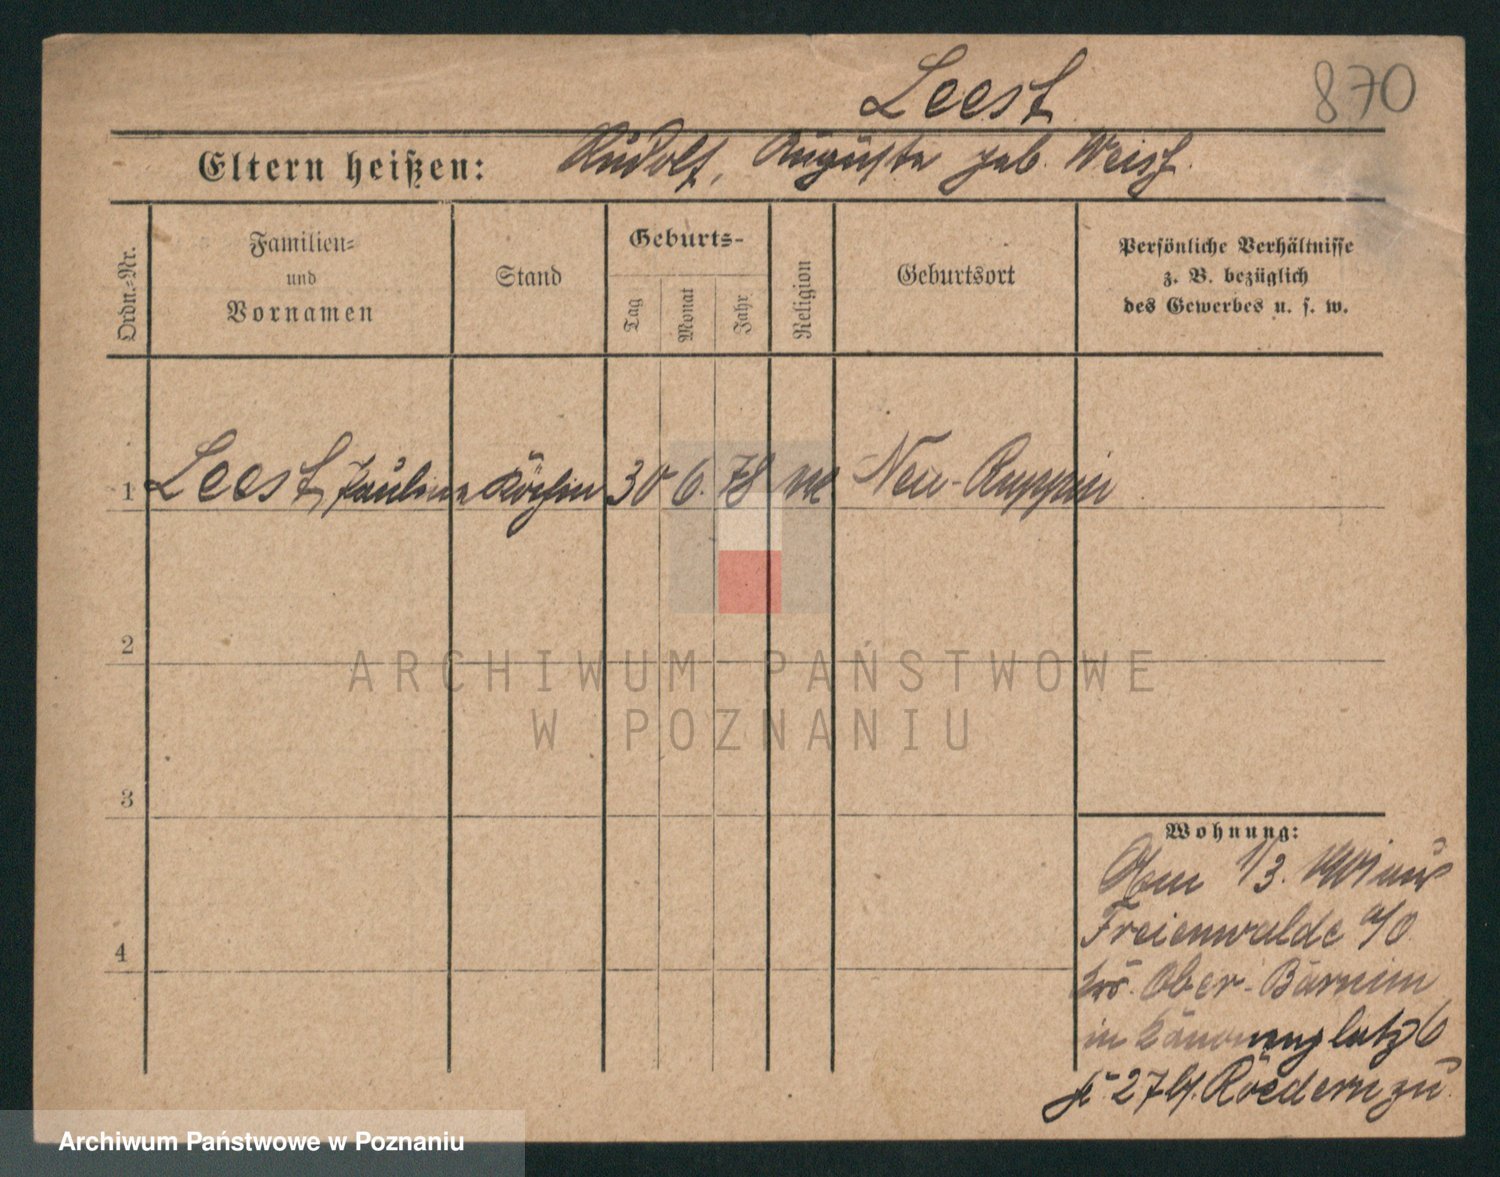 Leest
870
Eltern heißen: Rudolf, Auguste geb. Weiß.
Ordn.-Nr.
Familien-
und
Vornamen
Stand
Geburts-
Tag
Monat
Jahr
Religion
Geburtsort
Persönliche Verhältnisse
z. B. bezüglich
des Gewerbes u. s. w.
1 Leest, Pauline Köchin 30 6. 78 Neu-Ruppin
2
3
4
Wohnung:
Am 1/3. 1901 aus
Freienwalde a/O
Krs. Ober-Barnim
in Kanonenplatz 6
zu
ARCHIWUM PAŃSTWOWE
W POZNANIU
Archiwum Państwowe w Poznaniu